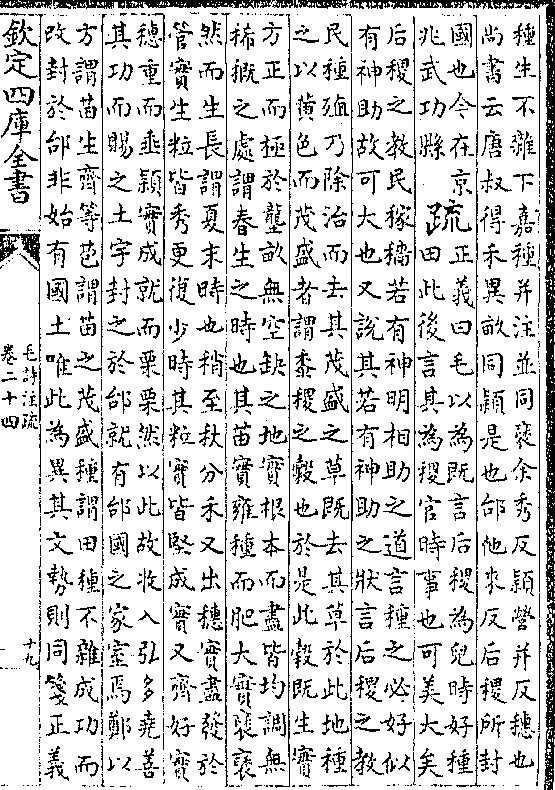 種生不雜下嘉種并注並同褎余秀反穎營并反穗也
尚書云唐叔得禾異畝同穎是也邰他來反后稷所封
國也今在京
兆武功縣
疏
正義曰毛以為既言后稷為兒時好種
田此後言其為稷官時事也可美大矣
后稷之教民稼穡若有神明相助之道言種之必好似
有神助故可大也又說其若有神助之狀言后稷之教
民種殖乃除治而去其茂盛之草既去其草於此地種
之以黄色而茂盛者謂黍稷之穀也於是此穀既生實
方正而極於壟畝無空缺之地實根本而盡皆均調無
稀概之處謂春生之時也其苗實雍種而肥大實褎褎
然而生長謂夏末時也稍至秋分禾又出穗實盡發於
管實生粒皆秀更復少時其粒實皆堅成實又齊好實
穗重而垂穎實成就而栗栗然以此故收入弘多堯善
其功而賜之土宇封之於邰就有邰國之家室焉鄭以
方謂苗生齊等苞謂苗之茂盛種謂田種不雜成功而
改封於邰非始有國土唯此為異其文勢則同箋正義
欽定四庫全書
毛詩注疏
卷二十四
十九